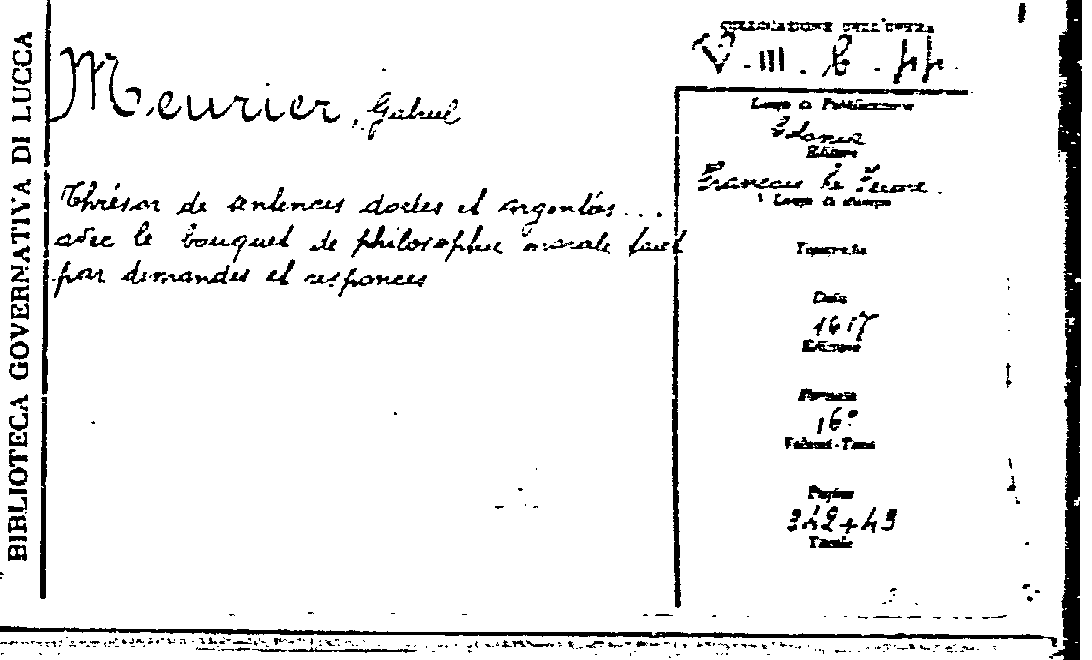 BIBLIOTECA GOVERNATIVA DI LUCCA
COLLOCAZIONE DELL'OPERA
V . III . 6 .
Meurier, Gabriel
Thrésor de sentences dorées et argentées ...
avec le bouquet de philosophie morale faict
par demandes et responces
Luogo di Pubblicazione
Editore
Francois Le
Luogo di stampa
Tipografia
Data
1617
Edizione
Formato
16°
Volumi - Tomi
Pagine
342+43
Tavole